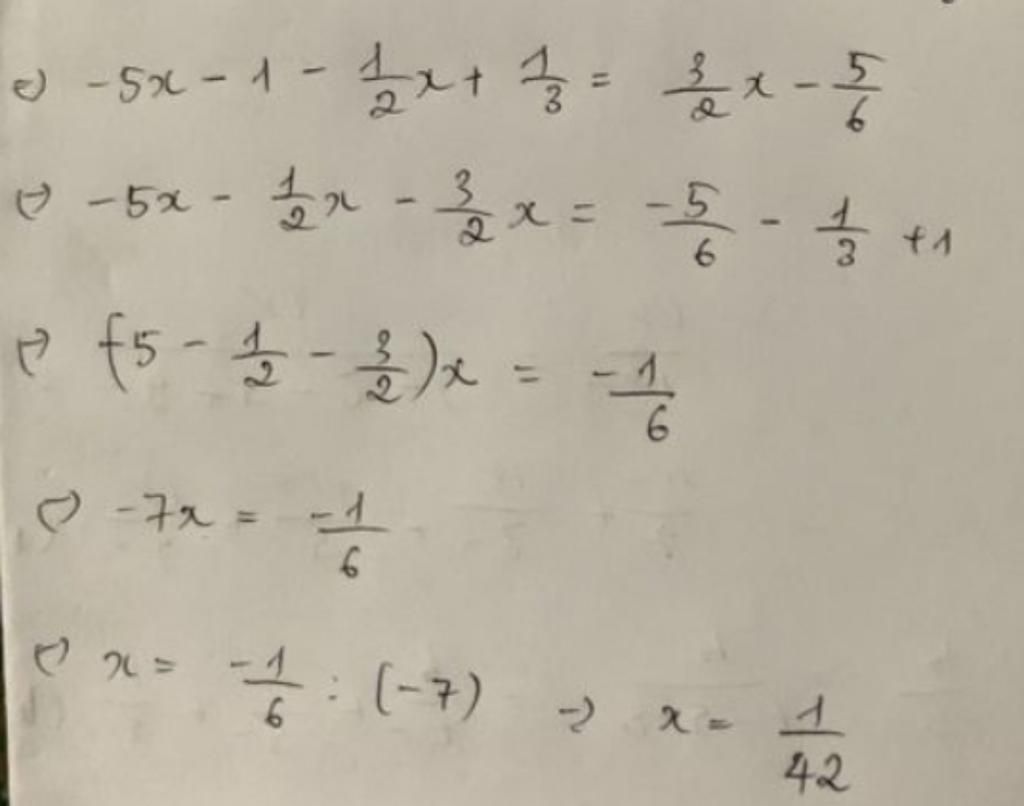 ⇔ -5x - 1 - 1/2 x + 1/3 = 3/2 x - 5/6
⇔ -5x - 1/2 x - 3/2 x = -5/6 - 1/3 + 1
⇔ (-5 - 1/2 - 3/2)x = -1/6
⇔ -7x = -1/6
⇔ x = -1/6 : (-7) ⇒ x = 1/42